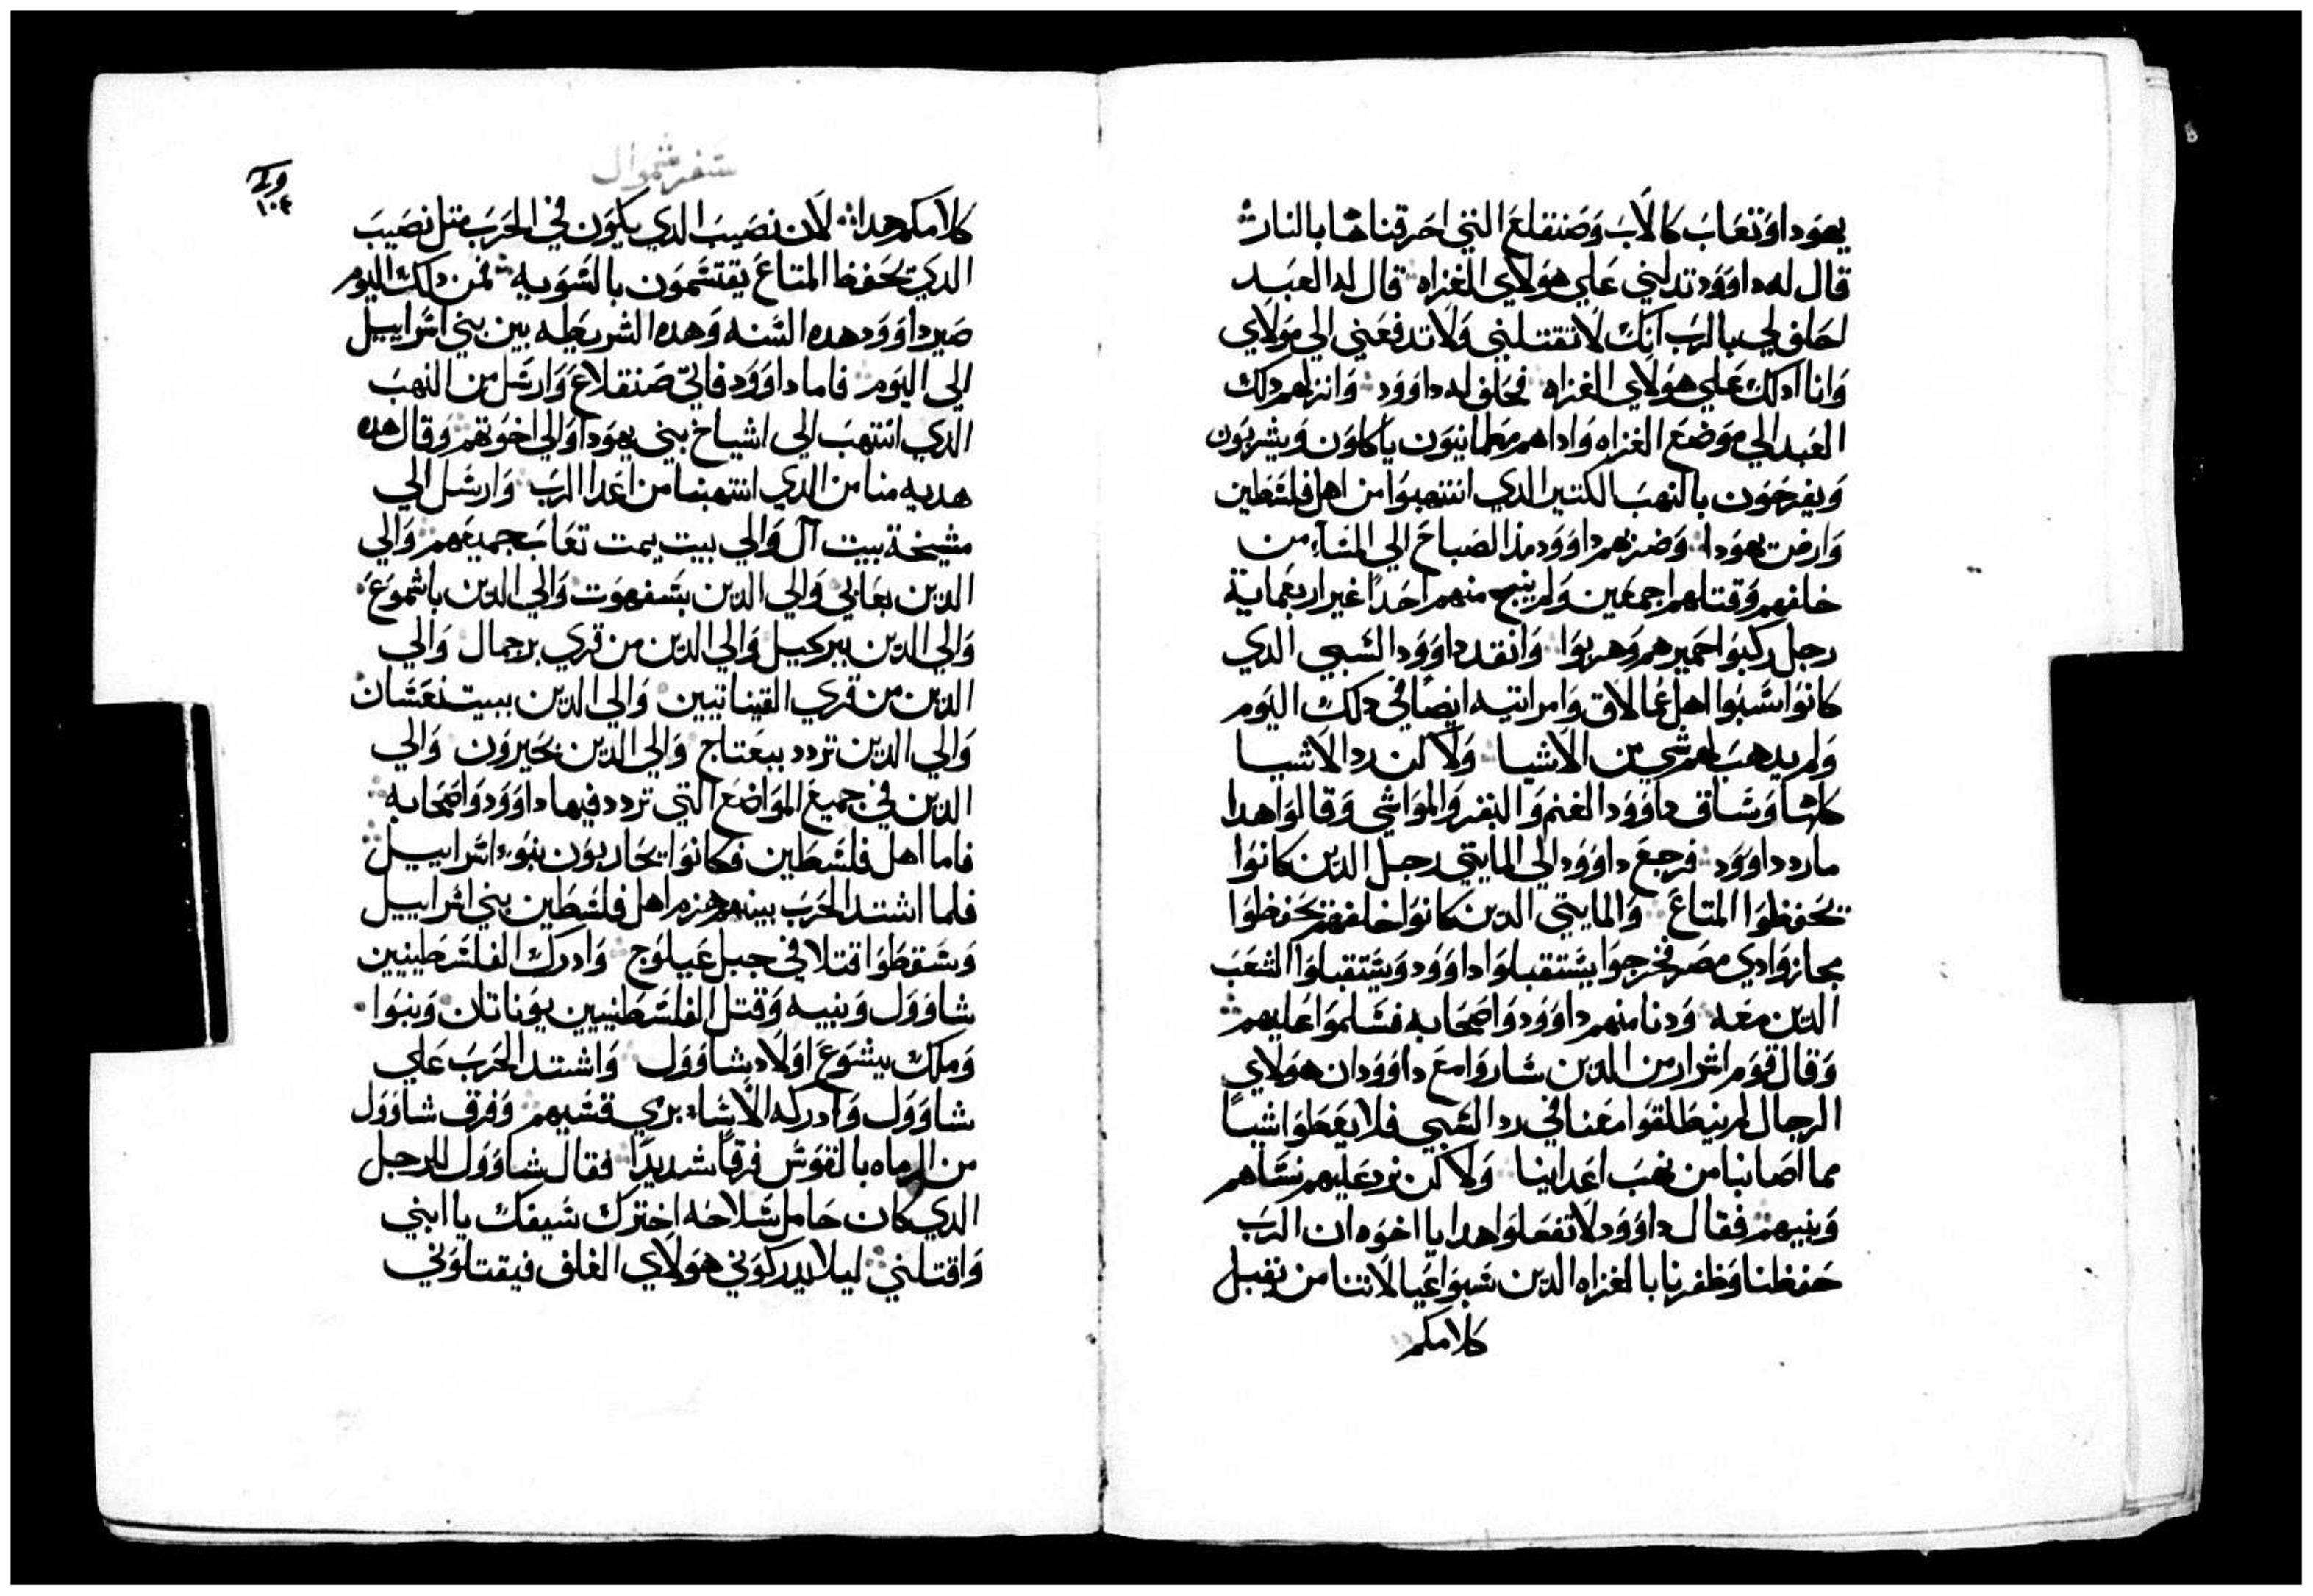 يهودا وتعاب كالاب وصنقلع التي احرقناها بالنار
قال له داوود تدلني علي هولاي الغزاه قال له العبد
احلف لي بالرب انك لا تقتلني ولا تدفعني الي مولاي
وانا ادلك علي هولاي الغزاه فحلف له داوود وانزلهم دلك
العبد الي موضع الغزاه واداهم مطمانيون ياكلون ويشربون
ويفرحون بالنهب الكتير الدي انتهبوا من اهل فلسطين
وارض يهودا وضربهم داوود مذ الصباح الي المساء من
خلفهم وقتلهم اجمعين ولم ينج منهم احدا غير اربعماية
رجل ركبوا حميرهم وهربوا وانقد داوود السبي الدي
كانوا سبوا اهل عمالاق وامراتيه ايضا في دلك اليوم
ولم يدهب لهم شي من الاشيا ولاكن رد الاشيا
كلها وساق داوود الغنم والبقر والمواشي وقالوا هدا
ما رد داوود فرجع داوود الي المايتي رجل الدين كانوا
يحفظوا المتاع والمايتي الدين كانوا خلفهم يحفظوا
مجاز وادي مصر فخرجوا يستقبلوا داوود ويستقبلوا الشعب
الدين معه ودنا منهم داوود واصحابه فسلموا عليهم
وقال قوم اشرار من الدين ساروا مع داوود ان هولاي
الرجال لم ينطلقوا معنا في رد السبي فلا يعطوا شيا
مما اصابنا من نهب اعداينا ولاكن نرد عليهم نساهم
وبنيهم فقال داوود لا تفعلوا هدا يا اخوه ان الرب
حفظنا وظفرنا بالغزاه الدين سبوا عيالاتنا من يقبل
كلامكم
سفر شموال
١٠٤
كلامكم هدا لان نصيب الدي يكون في الحرب متل نصيب
الدي يحفظ المتاع يقتسمون بالسويه فمن دلك اليوم
صير داوود هده السنه وهده الشريطه بين بني اسراييل
الي اليوم فاما داوود فاتي صنقلاع وارسل من النهب
الدي انتهب الي اشياخ بني يهودا والي اخوتهم وقال هده
هديه منا من الدي انتهبنا من اعدا الرب وارسل الي
مشيخة بيت آل والي بيت يمت تعاب جميعهم والي
الدين بعابي والي الدين بسفهوت والي الدين باشموع
والي الدين ببركيل والي الدين من قري برجمال والي
الدين من قري القيناتيين والي الدين ببيت نعسان
والي الدين تردد ببعتاج والي الدين بحيرون والي
الدين في جميع المواضع التي تردد فيها داوود واصحابه
فاما اهل فلسطين فكانوا يحاربون بنوا اسراييل
فلما اشتد الحرب بينهم هزم اهل فلسطين بني اسراييل
وسقطوا قتلا في جبل عيلوج وادرك الفلسطينيين
شاوول وبنيه وقتل الفلسطنيين يوناتان وينوا
وملك يشوع اولاد شاوول واشتد الحرب علي
شاوول وادركه الاشا بري قسيهم وفرق شاوول
من الرماه بالقوس فرقا شديدا فقال شاوول للرجل
الدي كان حامل سلاحه اخترك سيفك يا ابني
واقتلني ليلا يدركوني هولاي الغلف فيقتلوني